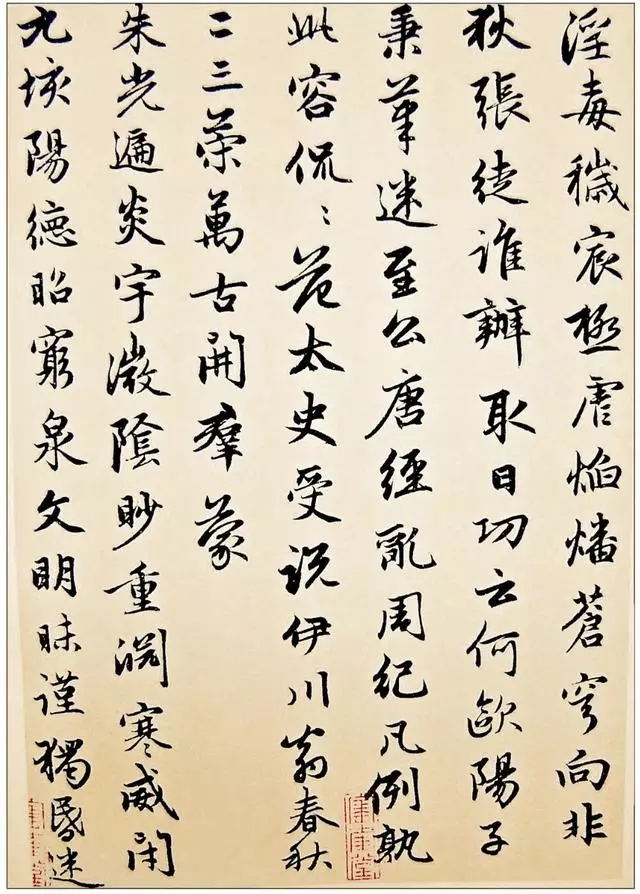 淫毒穢宸極虐焰燔蒼穹向非
狄張徒誰辦取日功云何歐陽子
秉筆迷至公唐經亂周紀凡例孰
此容侃〻范太史受說伊川翁春秋
二三策萬古開羣蒙
朱光遍炎宇微陰眇重淵寒威閉
九垓陽德昭窮泉文明昧謹獨昏迷